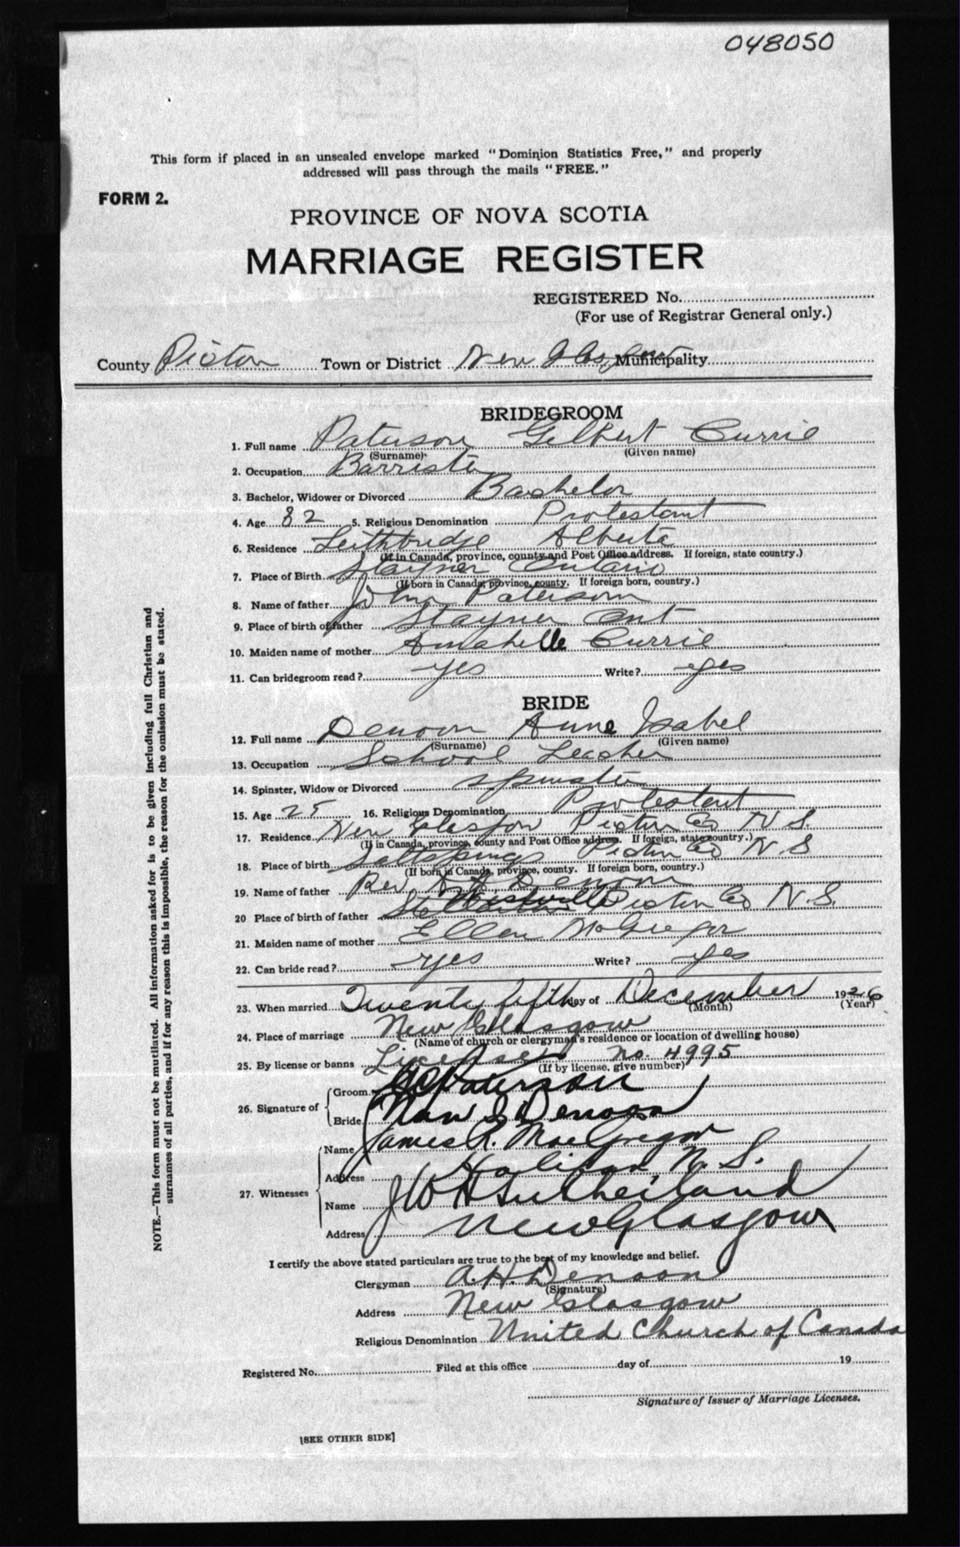 048050
This form if placed in an unsealed envelope marked "Dominion Statistics Free," and properly
addressed will pass through the mails "FREE."
FORM 2.
PROVINCE OF NOVA SCOTIA
MARRIAGE REGISTER
REGISTERED No.
(For use of Registrar General only.)
County Pictou Town or District New Glasgow Municipality
BRIDEGROOM
1. Full name Paterson Gilbert Currie
(Surname) (Given name)
2. Occupation Barrister
3. Bachelor, Widower or Divorced Bachelor
4. Age 32 5. Religious Denomination Protestant
6. Residence Lethbridge Alberta
(If in Canada, province, county and Post Office address. If foreign, state country.)
7. Place of Birth Stayner Ontario
(If born in Canada, province, county. If foreign born, country.)
8. Name of father John Paterson
9. Place of birth of father Stayner Ont
10. Maiden name of mother Annabelle Currie
11. Can bridegroom read? yes Write? yes
BRIDE
12. Full name Denoon Anne Isabel
(Surname) (Given name)
13. Occupation School Teacher
14. Spinster, Widow or Divorced Spinster
15. Age 25 16. Religious Denomination Protestant
17. Residence New Glasgow Pictou Co N S
(If in Canada, province, county and Post Office address. If foreign, state country.)
18. Place of birth Saltsprings Pictou Co N S
(If born in Canada, province, county. If foreign born, country.)
19. Name of father Rev A H Denoon
20 Place of birth of father Pictou Co N.S.
21. Maiden name of mother Ellen McGregor
22. Can bride read? yes Write? yes
23. When married Twenty fifth day of December 1926
(Month) (Year)
24. Place of marriage New Glasgow
(Name of church or clergyman's residence or location of dwelling house)
25. By license or banns License no. 4995
(If by license, give number)
26. Signature of Groom G C Paterson
Bride Nan I Denoon
27. Witnesses Name James R. MacGregor
Address N.S.
Name J W H Sutherland
Address New Glasgow
I certify the above stated particulars are true to the best of my knowledge and belief.
Clergyman A. H. Denoon
(Signature)
Address New Glasgow
Religious Denomination United Church of Canada
Registered No. Filed at this office day of 19
Signature of Issuer of Marriage Licenses.
[SEE OTHER SIDE]
NOTE.—This form must not be mutilated. All information asked for is to be given including full Christian and
surnames of all parties, and if for any reason this is impossible, the reason for the omission must be stated.